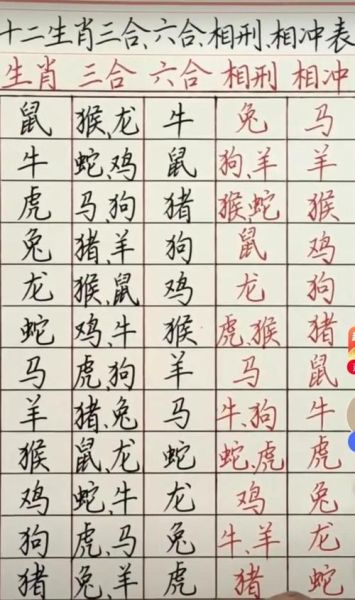 十二生肖三合、六合、相刑、相冲表
生肖 三合 六合 相刑 相冲
鼠 猴、龙 牛 兔 马
牛 蛇、鸡 鼠 狗、羊 羊
虎 马、狗 猪 猴、蛇 猴
兔 猪、羊 狗 鼠 鸡
龙 猴、鼠 鸡 龙 狗
蛇 鸡、牛 猴 虎、猴 猪
马 虎、狗 羊 马 鼠
羊 猪、兔 马 牛、狗 牛
猴 鼠、龙 蛇 蛇、虎 虎
鸡 蛇、牛 龙 鸡 兔
狗 虎、马 兔 牛、羊 龙
猪 兔、羊 虎 猪 蛇